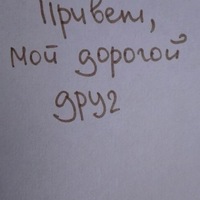 Привет,
мой дорогой
друг